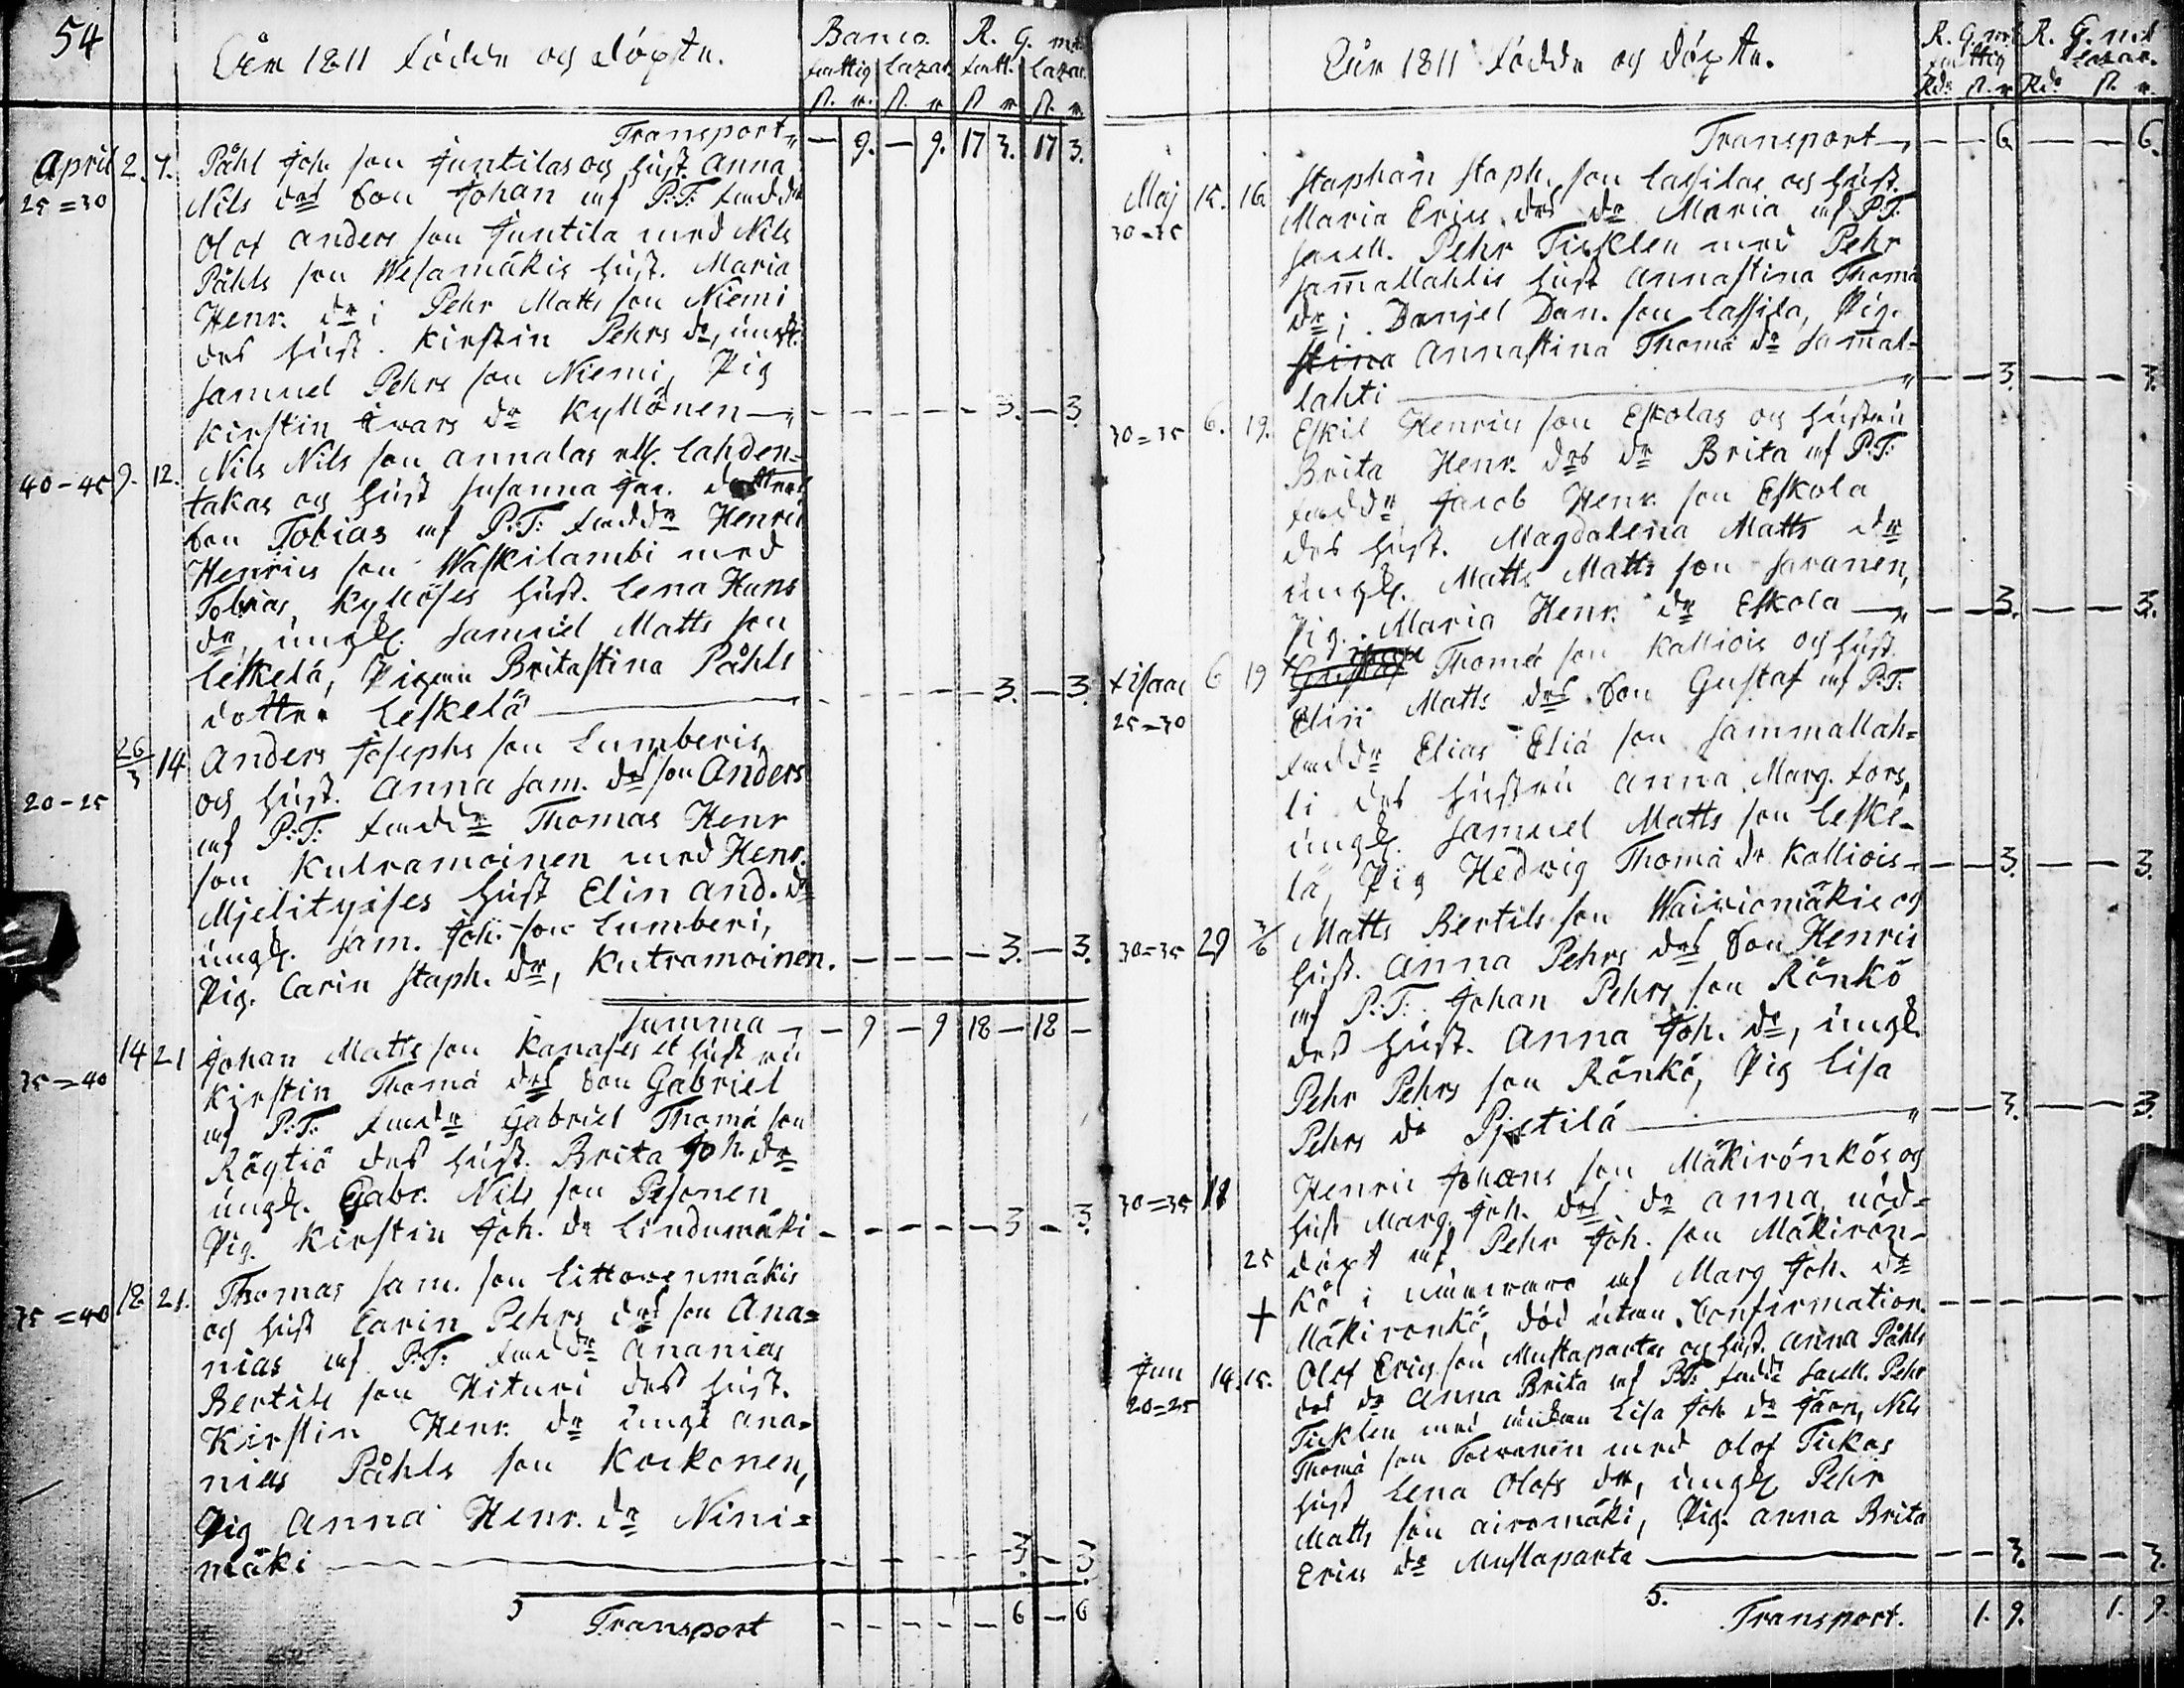 54
Åhr 1811 födde og döpte.
Banco. R. G. mt
fattig Lazar. fatt. Lazar.
s. r. s. r. s. r. s. r.
Transport — 9. — 9. 17 3. 17 3.
April 2. 7. Påhl Joh. son Juntilas og hust. Anna
25=30 Nils des Son Johan af P:T: fadde
Olof Anders son Juntila med Nils
Påhls son Wesamäkis hust. Maria
Henr. dr; Pehr Matts son Niemi
des hust. Kirstin Pehrs dr, ungk.
Samuel Pehrs son Niemi, Pig
Kirstin Ivars dr Kyllönen — 3. — 3
40-45 9. 12. Nils Nils son Annalas ell. Lahden=
takas og hust Susanna Jac. dotters
Son Tobias af P:T: faddr Henric
Henrics son Waskilambi med
Tobias Kyllöses hust. Lena Hans
dr, ungk. Samuel Matts son
Leskelä, Pigan Britastina Påhls
dotter Leskelä — 3. — 3.
26/3 14 Anders Josephs son Lumberis
20-25 og hust. Anna Sam. dr son Anders
af P:T: faddr Thomas Henr
son Kutramoinen med Henr.
Mjelityises hust Elin And. dr
ungk. Sam. Joh. son Lumberi,
Pig. Carin Staph. dr, Kutramoinen. — 3. — 3.
Summa — 9 — 9 18 — 18 —
14 21 Johan Matts son Kanases et hustru
35=40 Kirstin Thomä des Son Gabriel
af P:T: faddr Gabriel Thomä son
Röytiö des hust. Brita Joh. dr
ungk. Gabr. Nils son Pesonen
Pig. Kirstin Joh. dr Lindumäki — 3 — 3.
35=40 18 21. Thomas Sam. son Littowenmäkis
og hust Carin Pehrs des son Ana=
nias af P:T: faddr Ananias
Bertils son Hituri des hust.
Kirstin Henr. dr ungk Ana=
nias Påhls son Korkonen,
Pig Anna Henr. dr Nini=
mäki — 3. — 3.
5 Transport — 6 — 6
Åhr 1811 födde og döpte.
R. G. mt R. G. mt
fattig Lazar.
Rd. s. r. Rd. s. r.
Transport — — 6. — — 6.
Maj 15. 16. Staphan Staph. son Lassilas og hust.
30-35 Maria Erics des dr Maria af P:T:
Sacell. Pehr Ticklen med Pehr
Sam̅allahtis hust Annastina Thomä
dr; Danjel Dan. son Lassila, Pig.
Stina Annastina Thomä dr Sam̅al=
lahti — — 3. — — 3.
30=35 6. 19. Eskil Henrics son Eskolas og hustru
Brita Henr. des dr Brita af P:T:
faddr Jacob Henr. son Eskola
des hust. Magdalena Matts dr
ungk. Matts Matts son Savanen,
Pig. Maria Henr. dr Eskola — — 3. — — 3.
x Isaac 6 19 Gustaf Isaac Thomä son Kalliois og hust.
25-30 Elin Matts des Son Gustaf af P:T:
faddr Elias Eliä son Sammallah=
ti des hustru Anna Marg. Fors,
ungk. Samuel Matts son Leske=
lä, Pig Hedwig Thomä dr Kalliois — — 3. — — 3.
30=35 29 3/6 Matts Bertils son Wairiomäkis og
hust. Anna Pehrs des Son Henric
af P:T: Johan Pehrs son Rönkö
des hust. Anna Joh. dr, ungk.
Pehr Pehrs son Rönkö, Pig Lisa
Pehrs dr Pjetilä — — 3. — — 3.
30=35 18 Henric Johans son Mäkirönkös og
hust Marg. Joh. des dr Anna, nöd=
25 döpt af Pehr Joh. son Mäkirön=
kö i närvaro af Marg Joh. dr
+ Mäkirönkö, död utan Confirmation.
Jun 14. 15. Olof Erics son Mustapartas og hust. Anna Påhls
20=25 des dr Anna Brita af P:T: faddr Sacell. Pehr
Ticklen med Lisa Joh. dr Nils
Thomä son Toivanen med Olof Tickas
hust Lena Olofs dr, ungk Pehr
Matts son Airomäki, Pig. Anna Brita
Erics dr Mustaparta — — 3. — — 3.
5. Transport. 1. 9. 1. 9.